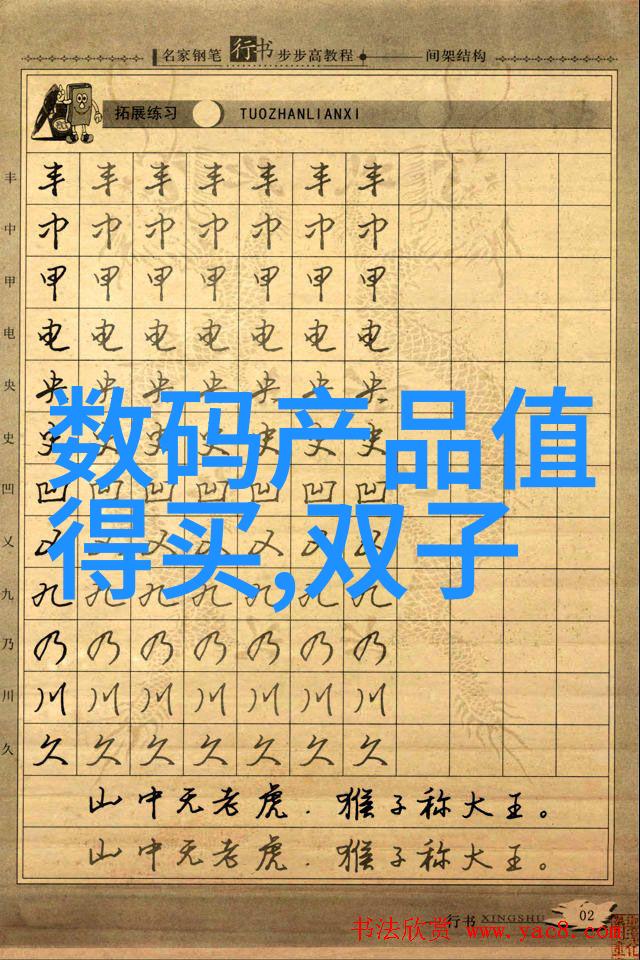 名家钢笔行书步步高教程 间架结构
拓展练习 TUOZHANLIANXI
丰 丰 丰 丰 丰 丰 丰 丰
中 中 中 中 中 中 中 中
甲 甲 甲 甲 甲 甲 甲 甲
电 电 电 电 电 电 电 电
央 央 央 央 央 央 央 央
史 史 史 史 史 史 史 史
数码产品值
凹 凹 凹 凹 凹 凹 凹 凹
乂 乂 乂 乂 乂 乂 乂 乂
得买,双子
九 九 九 九 九 九 九 九
乃 乃 乃 乃 乃 乃 乃 乃
川 川 川 川 川 川 川 川
久 久 久 久 久 久 久 久
山中无老虎.猴子称大王。
山中无老虎.猴子称大王。
行书 XINGSHU 02
书法欣赏 www.yac8.com